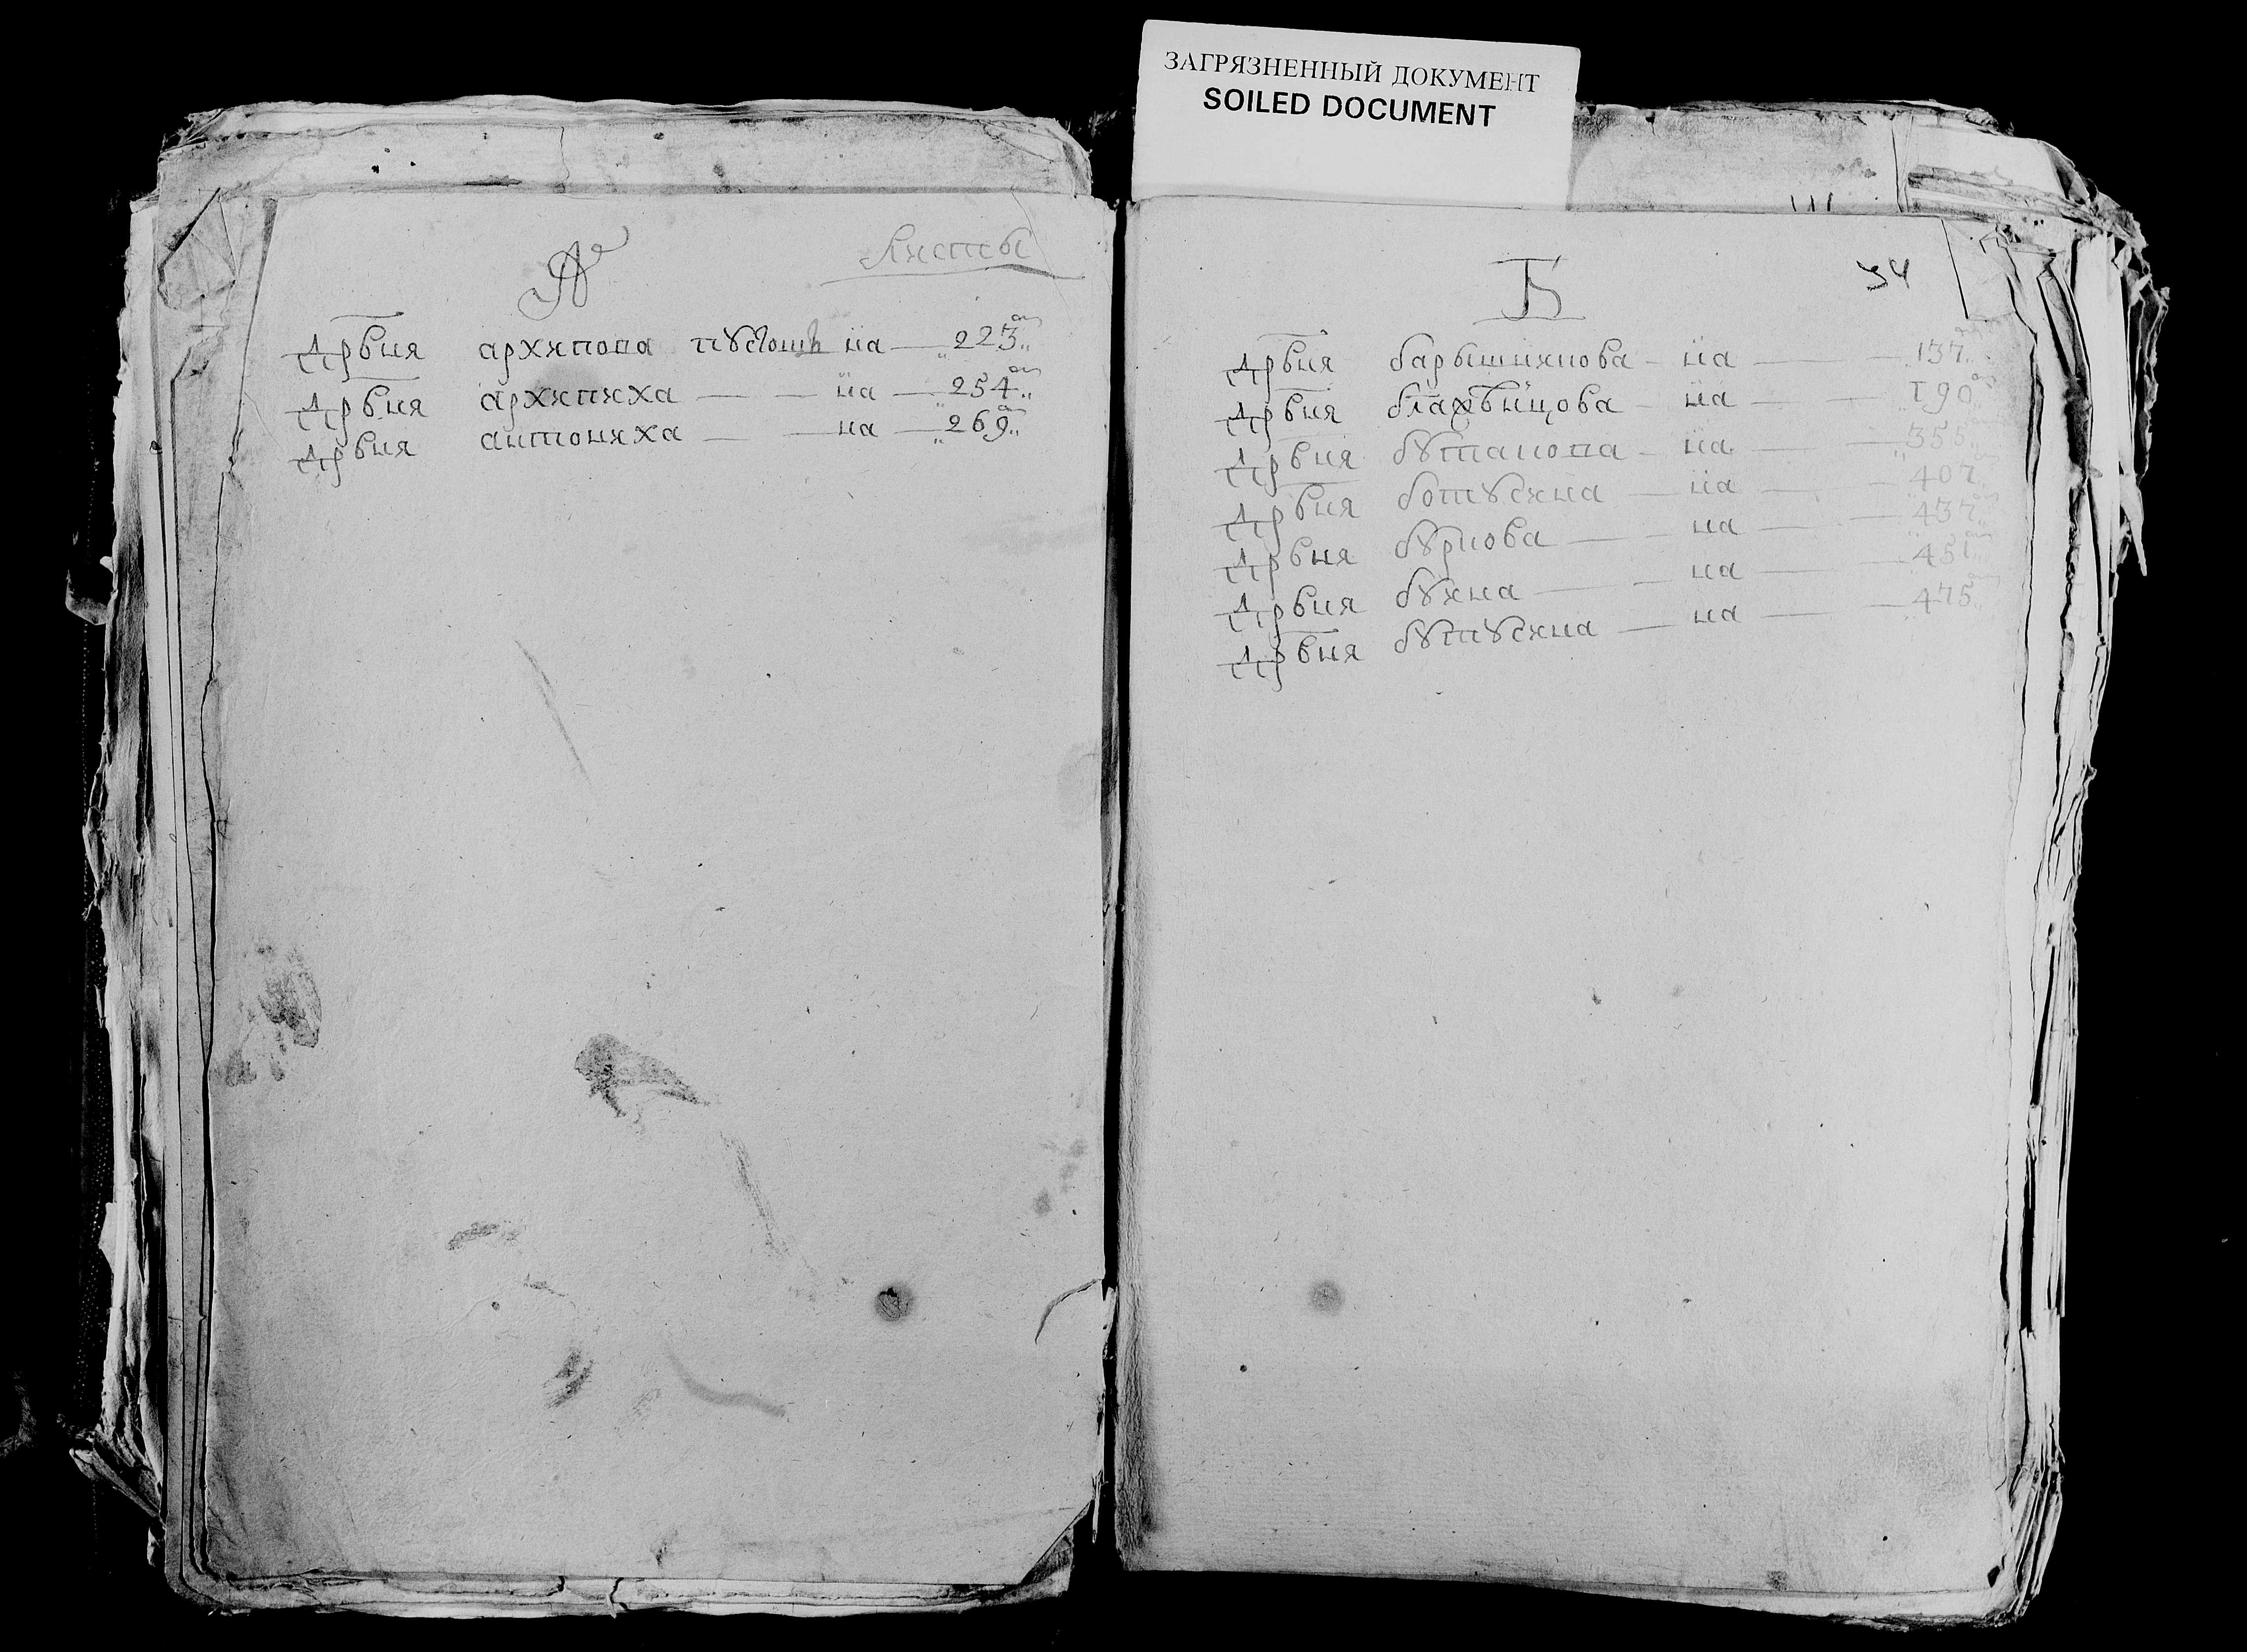 ЗАГРЯЗНЕННЫЙ ДОКУМЕНТ
SOILED DOCUMENT
А
Листы
Дрвня архипова пустошь на — 223 м
Дрвня архипиха — — на — 254 м
Дрвня антониха — — на — 269 м
Б 34
Дрвня барышникова — на — 137
Дрвня на — 190
Дрвня бутакова — на — 355
Дрвня ботусина — на — 407
Дрвня бурнова — — на — 437
Дрвня букина — — на — 451
Дрвня бутусина — на — 475